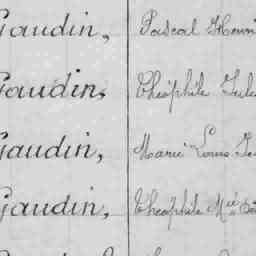 Gaudin, Pascal Henri
Gaudin, Théophile
Gaudin, Marie Louis
Gaudin, Théophile Mie